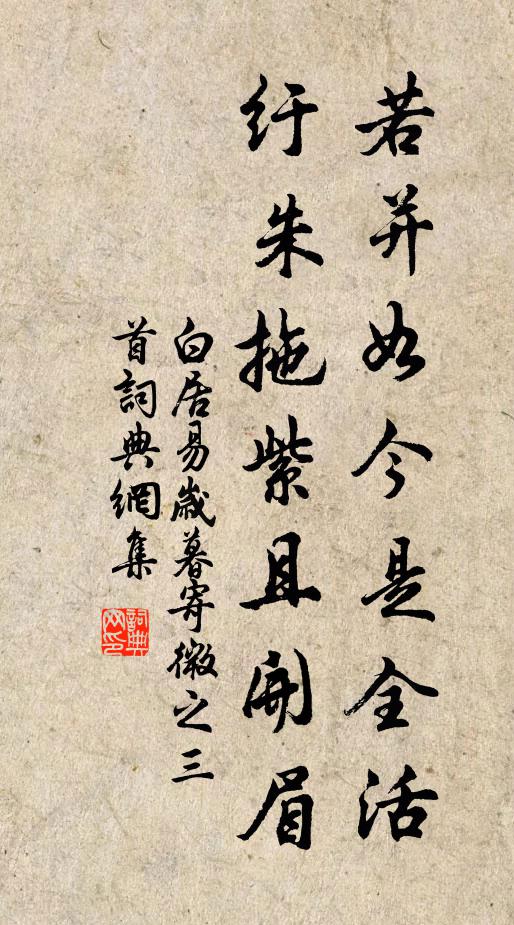 若并如今是全活
纡朱拖紫且開眉
白居易歲暮寄微之三
首詞典網集
詞典
网印